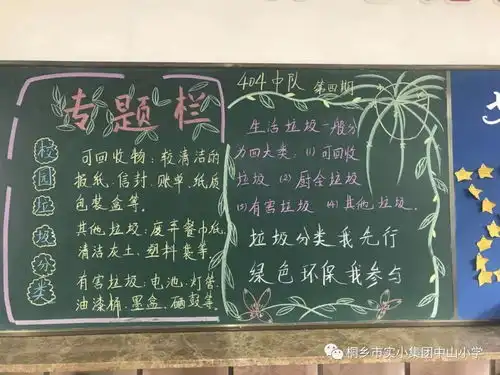 专题栏
校园垃圾分类
可回收物：较清洁的
报纸、信封、账单、纸质
包装盒等。
其他垃圾：废弃餐巾纸、
清洁灰土、塑料袋等。
有害垃圾、电池、灯管、
油漆桶、墨盒、硒鼓等。
404中队 第四期
生活垃圾一般分
为四大类：(1)可回收
垃圾 (2)厨余垃圾
(3)有害垃圾 (4)其他垃圾.
垃圾分类我先行
绿色环保我参与
桐乡市实小集团中山小学